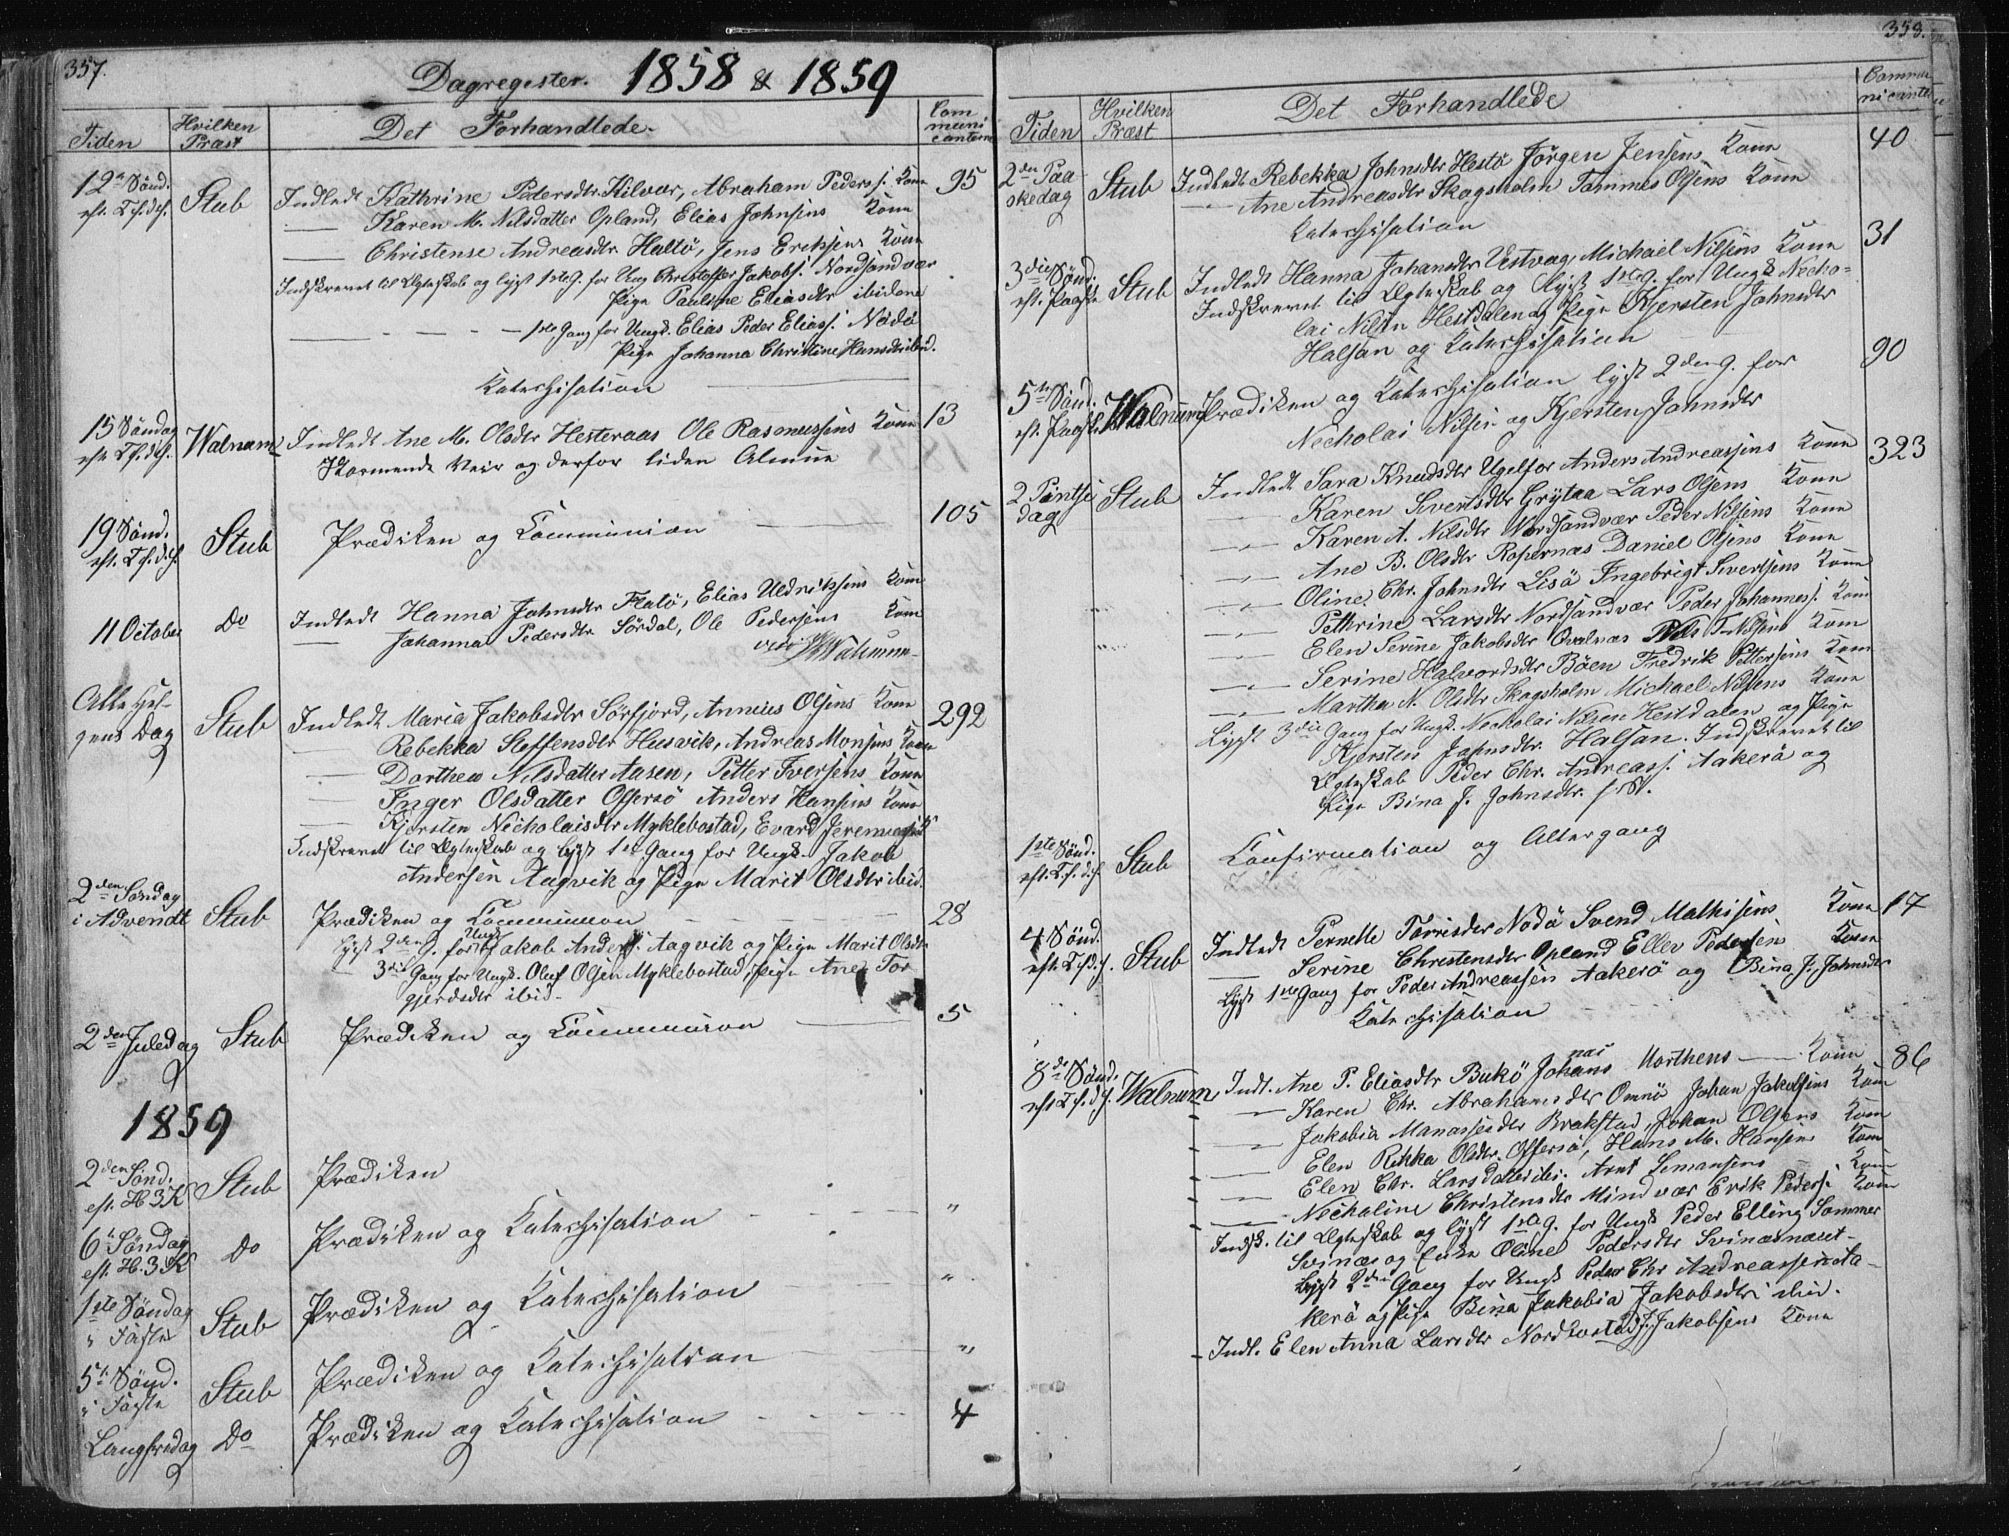 357.
Dagregister. 1858 & 1859
Tiden
Hvilken Præst
Det Forhandlede.
Com muni canterne
12te Sønd. eft. Tf. d. h.
Stub
Indledt Kathrine Pedersdtr. Kilvær, Abraham Peders f. Kone
95
— Karen M. Nilsdatter Opland, Elias Johnsens Kone
— Christense Andreasdtr Haltø, Jens Eriksens Kone
Indskrevet til Ægteskab og lyst 1ste G. for Ung. Christoffer Jakobs. Nordsandvær
Pige Pauline Eliasdtr ibidem
— 1ste Gang for Ungk. Elias Peder Elias f. Nødø
Pige Johanna Christine Hansdtr ibid.
Katechisation
15 Søndag eft. Tf. d. h.
Walnum
Indledt Ane M. Olsdtr Hesteraas Ole Rasmussens Kone
13
Stormende Veir og derfor liden Almue
19 Sønd. eft. Tf. d. h.
Stub
Prædiken og Communion
105
11 October
Do
Indledt Hanna Johnsdtr Flatø, Elias Uldriksens Kone
— Johanna Pedersdtr Sørdal, Ole Pedersens Kone
vidi Walnum
Alle Hel-
gens Dag
Stub
Indledt Maria Jakobsdtr Sørfjord, Annæus Olsens Kone
292
— Rebekka Steffensdtr Husvik, Andreas Monsens Kone
— Dorthea Nilsdatter Aasen, Petter Iversens Kone
— Inger Olsdatter Offersø Anders Hansens Kone
— Kjersten Necholaisdtr Myklebostad, Evard Jeremiasens
Indskrevet til Ægteskab og lyst 1ste Gang for Ungk. Jakob
Andersen Aagvik og Pige Marit Olsdtr ibid.
2den Søndag
i Advendt
Stub
Prædiken og Communion
28
lyst 2den G. for Ungk. Jakob Anders. Aagvik og Pige Marit Olsdtr
— 3die Gang for Ungk. Oluf Olsen Myklebostad, Pige Ane Tor
gjersdtr ibid.
2den Juledag
Stub
Prædiken og Communion
5
1859
2den Sønd.
eft. H. 3 K
Stub
Prædiken
6te Søndag
eft. H. 3 K
Do
Prædiken og Katechisation
"
1ste Søndag
i Faste
Stub
Prædiken og Katechisation
"
5te Sønd.
i Faste
Stub
Prædiken og Katechisation
"
Langfredag
Do
Prædiken og Katechisation
4
359.
Tiden
Hvilken Præst
Det Forhandlede
Commu nicanter
2den Paa
skedag
Stub
Indledt Rebekka Johnsdtr Hestø Jørgen Jensens Kone
40
— Ane Andreasdtr Skogsholm Tommes Olsens Kone
Katechisation
3die Sønd.
eft. Paaske
Stub
Indledt Hanna Johansdtr Vestvaag, Michael Nilsens Kone
31
Indskrevet til Ægteskab og lyst 1ste G. for Ungk Necho-
lai Nilsen Hestdalen og Pige Kjersten Johnsdtr
Halsan og Katechisation
5te Sønd.
eft. Paaske
Walnum
Prædiken og Katechisation lyst 2den G. for
90
Necholai Nilsen og Kjersten Johnsdtr
2 Pintse
dag
Stub
Indledt Sara Knudsdtr Ugelfor Anders Andreassens Kone
323
— Karen Sivertsdtr Grytaa Lars Olsens Kone
— Karen A. Nilsdtr Nordsandvær Peder Nilsens Kone
— Ane B. Olsdtr Ropernas Daniel Olsens Kone
— Oline Chr. Johnsdtr Lisø Ingebrigt Sivertsens Kone
— Pethrine Larsdtr Nordsandvær Peder Johannes f. Kone
— Elen Serine Jakobsdtr Qvalnæs Nils T. Nilsens Kone
— Serine Halvordsdtr Bøen Fredrik Pettersens Kone
— Martha N. Olsdtr Skogsholm Michael Nilsens Kone
Lyst 3die Gang for Ungk. Necholai Nilsen Hestdalen og Pige
Kjersten Johnsdtr. Halsan. Indskrevet til
Ægteskab Peder Chr. Andreas f. Aakerø og
Pige Bina J. Johnsdtr.
1ste Sønd.
eft. Tf. d. h.
Stub
Confirmation og Altergang
4 Sønd.
eft. Tf. d. h.
Stub
Indledt Pernelle Torrisdtr Nødø Svend Mathisens Kone
17
— Serine Christensdtr Opland Ellev Pedersen Kone
Lyst 1ste Gang for Peder Andreassen Aakerø og Bina J. Johnsdtr
Katechisation
8de Sønd.
eft. Tf. d. h.
Walnum
Indl. Ane P. Eliasdtr Bukø Johanas Morthens — Kone
86
— Karen Chr. Abrahamsdtr Omnø Johan Jakobsens Kone
— Jakobia Manassesdtr Brakstad, Johan Olsens Kone
— Elen Rikka Olsdtr. Offersø, Hans M. Hansens Kone
— Elen Chr. Larsdatter ibi. Arnt Simonsens Kone
— Necholine Christensdtr Mindvær Erik Peders f. Kone
Indsk. til Ægteskab og lyst 1ste G. for Ungk Peder Elling Sommer
Svinæs og Enke Oline Pedersdtr Svinæsnæset
Lyst 2den Gang for Ungk Peder Chr Andreassen Aa-
kerø og Pige Bina Jakobia Jakobsdtr ibid.
Indl. Elen Anna Larsdtr Nordbostad J. Jakobsens Kone